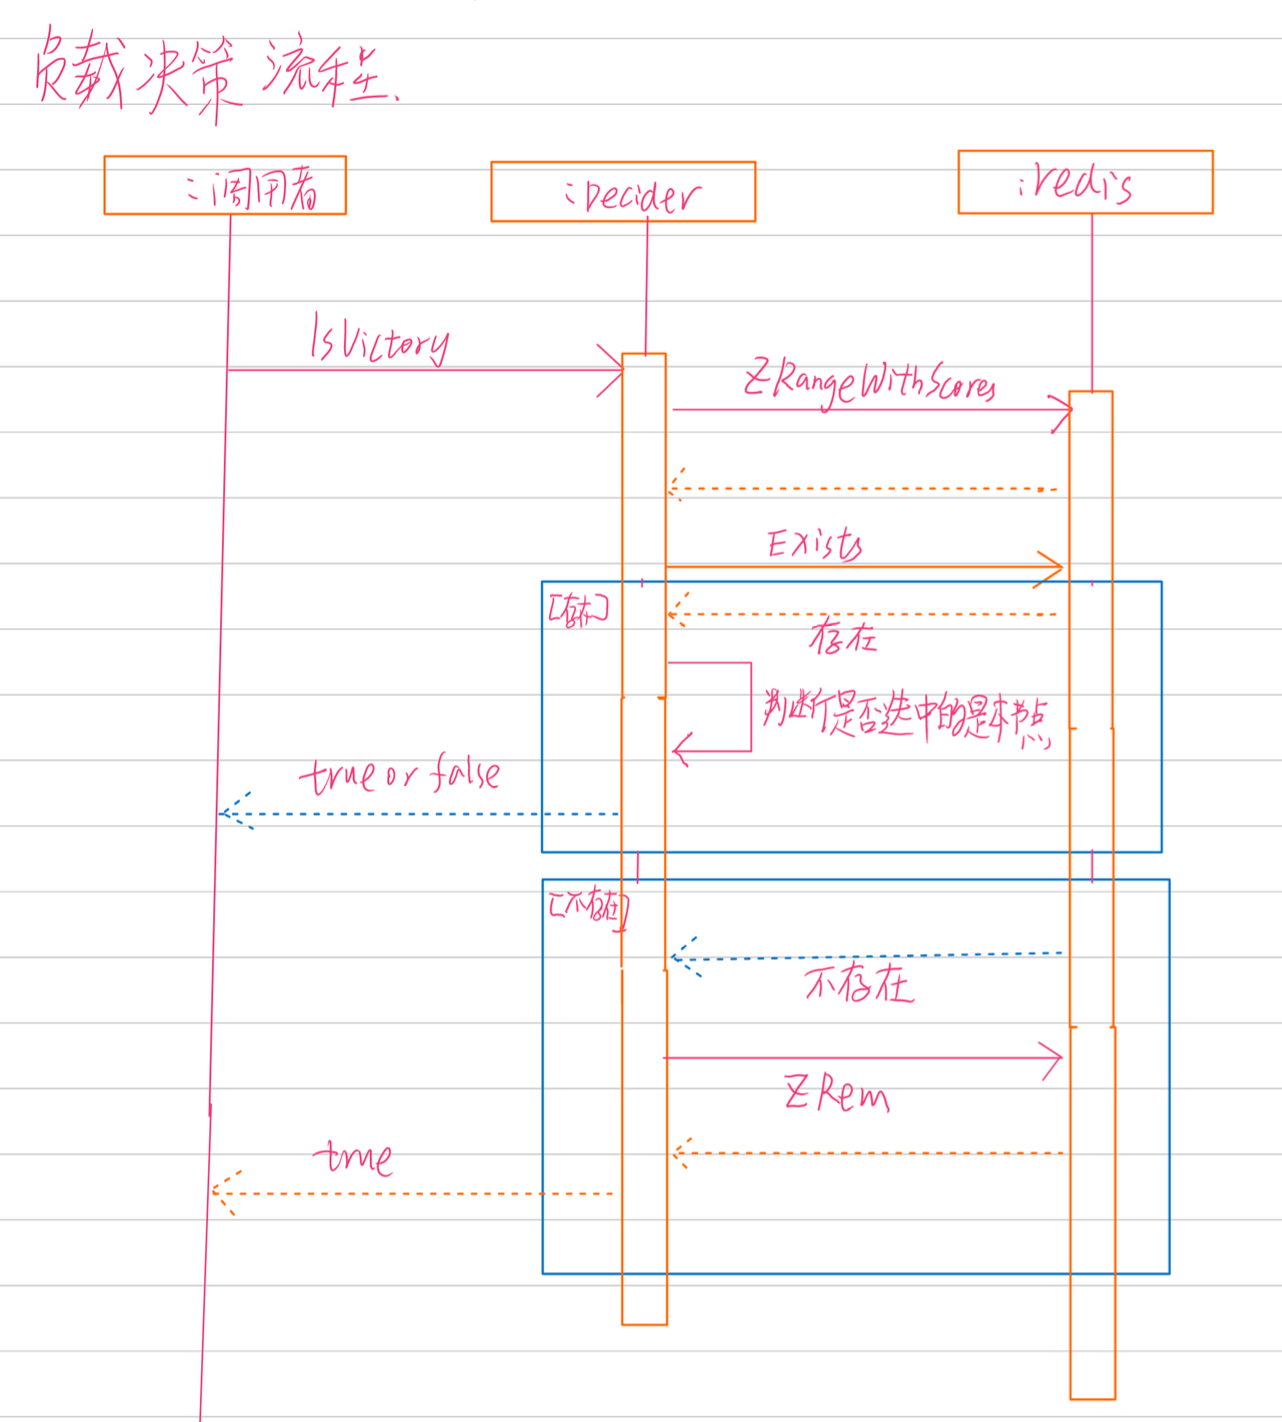 负载决策流程.
:调用者
:Decider
:redis
IsVictory
ZRangeWithScores
Exists
[存在]
存在
判断是否选中的是本节点
true or false
[不存在]
不存在
ZRem
true